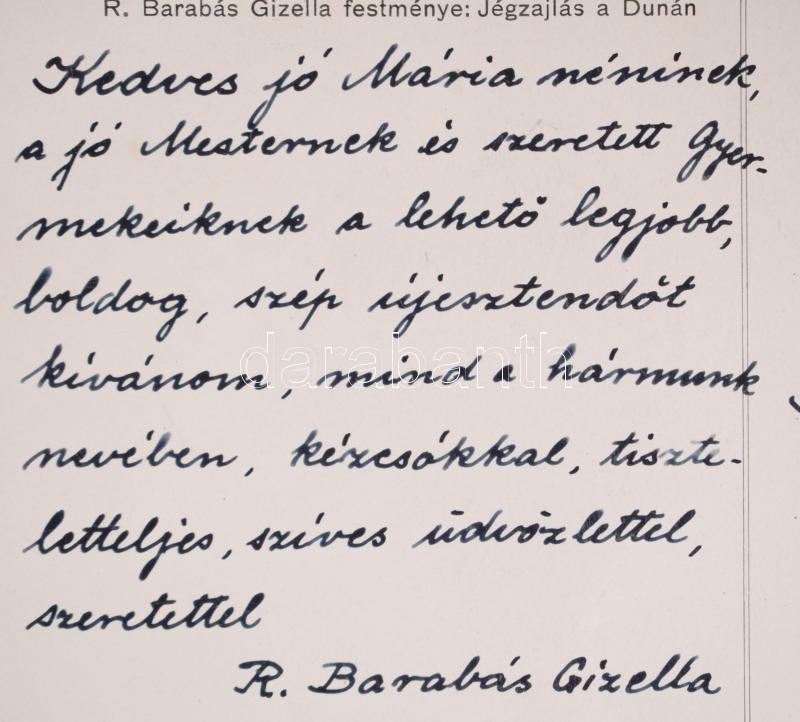 R. Barabás Gizella festménye: Jégzajlás a Dunán
Kedves jó Mária néninek,
a jó Mesternek és szeretett Gyer-
mekeiknek a lehető legjobb,
boldog, szép újesztendőt
kívánom, mind a hármunk
nevében, kézcsókkal, tiszte-
letteljes, szíves üdvözlettel,
szeretettel
R. Barabás Gizella
darabanth